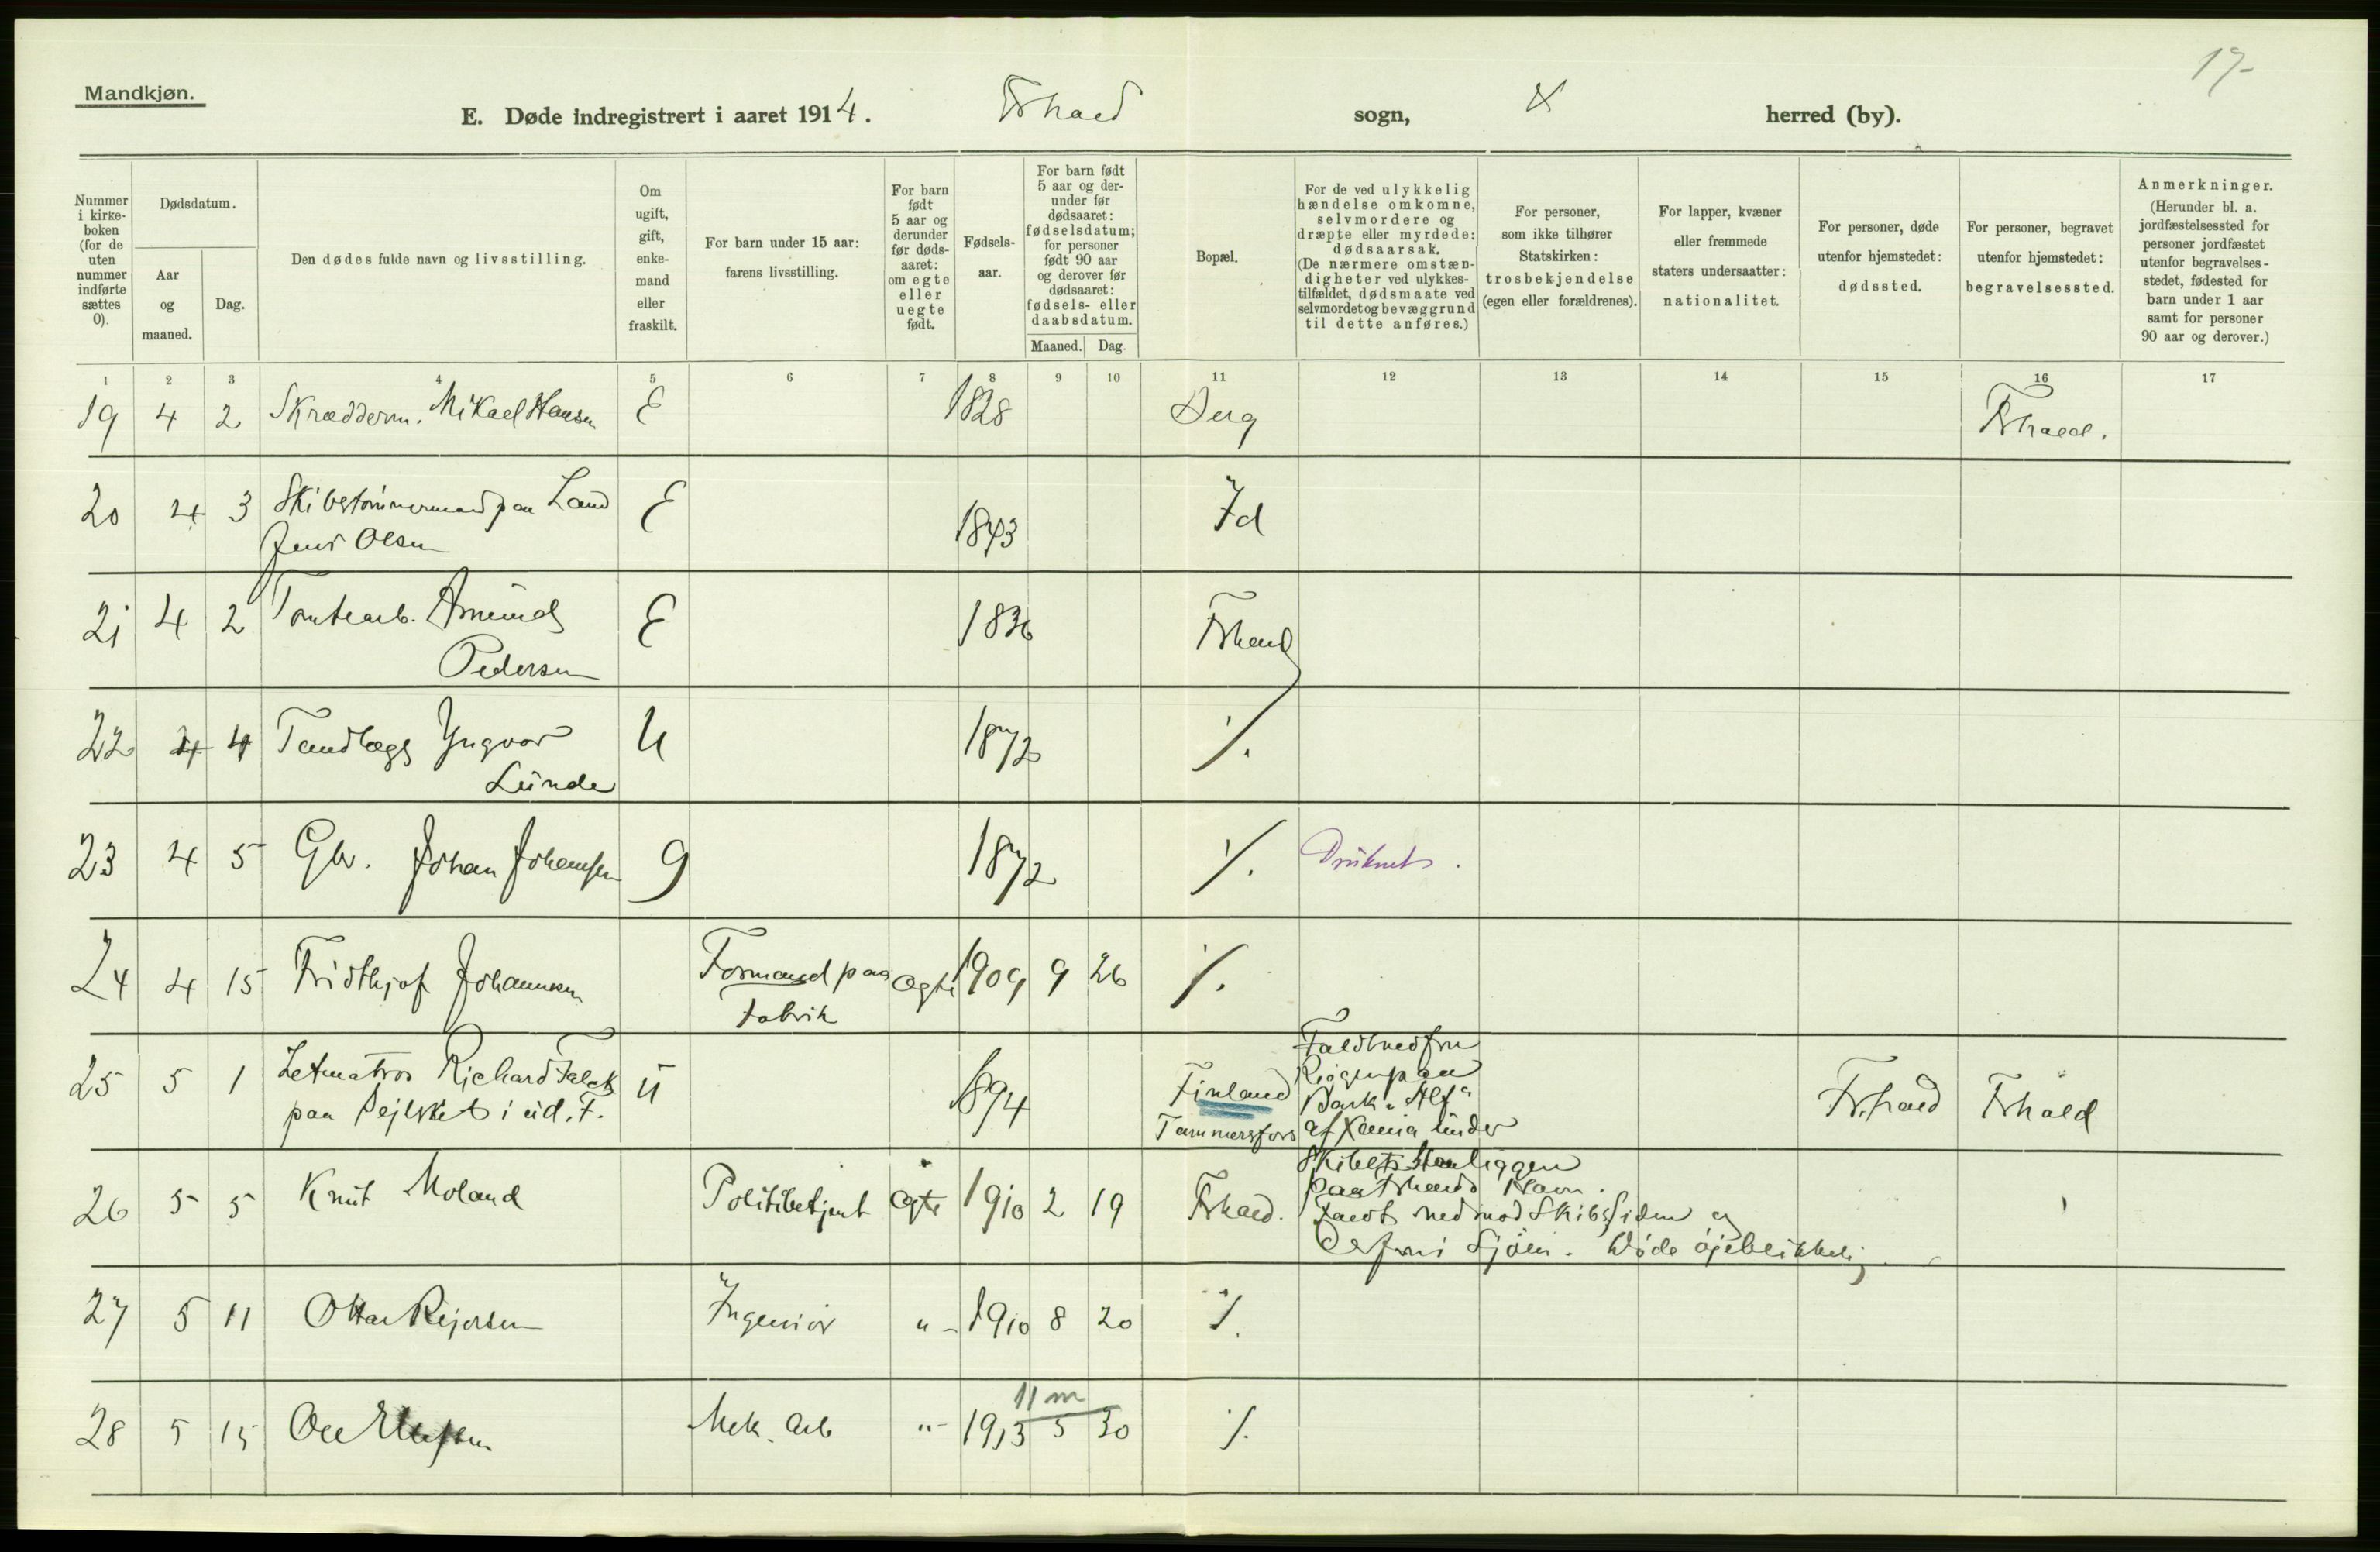 17-
Mandkjøn.
E. Døde indregistrert i aaret 1914. Frhald sogn, herred (by).
Nummer i kirkeboken (for de uten nummer indførte sættes 0).
Dødsdatum.
Aar og maaned.
Dag.
Den dødes fulde navn og livsstilling.
Om ugift, gift, enkemand eller fraskilt.
For barn under 15 aar: farens livsstilling.
For barn født 5 aar og derunder før dødsaaret: om egte eller uegte født.
Fødselsaar.
For barn født 5 aar og derunder før dødsaaret: fødselsdatum; for personer født 90 aar og derover før dødsaaret: fødsels- eller daabsdatum.
Maaned. Dag.
Bopæl.
For de ved ulykkelig hændelse omkomne, selvmordere og dræpte eller myrdede: dødsaarsak. (De nærmere omstændigheter ved ulykkestilfældet, dødsmaate ved selvmordet og bevæggrund til dette anføres.)
For personer, som ikke tilhører Statskirken: trosbekjendelse (egen eller forældrenes).
For lapper, kvæner eller fremmede staters undersaatter: nationalitet.
For personer, døde utenfor hjemstedet: dødssted.
For personer, begravet utenfor hjemstedet: begravelsessted.
Anmerkninger. (Herunder bl. a. jordfæstelsessted for personer jordfæstet utenfor begravelsesstedet, fødested for barn under 1 aar samt for personer 90 aar og derover.)
1 2 3 4 5 6 7 8 9 10 11 12 13 14 15 16 17
19 4 2 Skrædderm. Mikael Hansen E 1828 Berg Frhald.
20 4 3 Skibstømmermand paa Land E 1843 Id
Jens Olsen
21 4 2 Tomtearb. Amund E 1836 Frhald
Pedersen
22 4 4 Tandlæge Yngvar U 1872 ./.
Lunde
23 4 5 Gbr. Johan Johansen g 1872 ./. Druknet.
24 4 15 Fridthjof Johannesen Formand paa Fabrik ægte 1909 9 26 ./.
25 5 1 Letmatros Richard Falck U 1894 Finland Frhald Frhald
paa Sejlskib i ud. F. Tammersfors
Faldt ned fra
Riggen paa
Bark "Alf"
af Xania under
Skibets Henliggen
paa Frhalds Havn.
Faldt ned mod Skibssiden og
derfra i Sjøen. Døde øjeblikkelig.
26 5 5 Knut Moland Politibetjent ægte 1910 2 19 Frhald.
27 5 11 Ottar Rejersen Ingeniør " - 1910 8 20 ./.
11 m
28 5 15 Ole Mek. Arb " - 1913 5 30 ./.